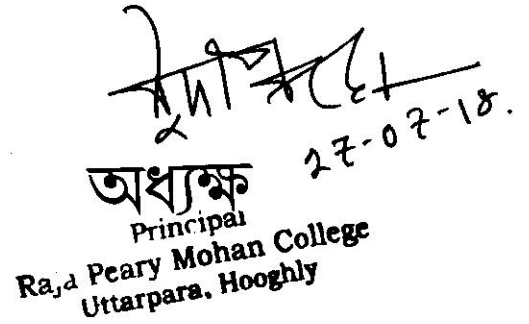 27-07-18.
অধ্যক্ষ
Principal
Raja Peary Mohan College
Uttarpara, Hooghly